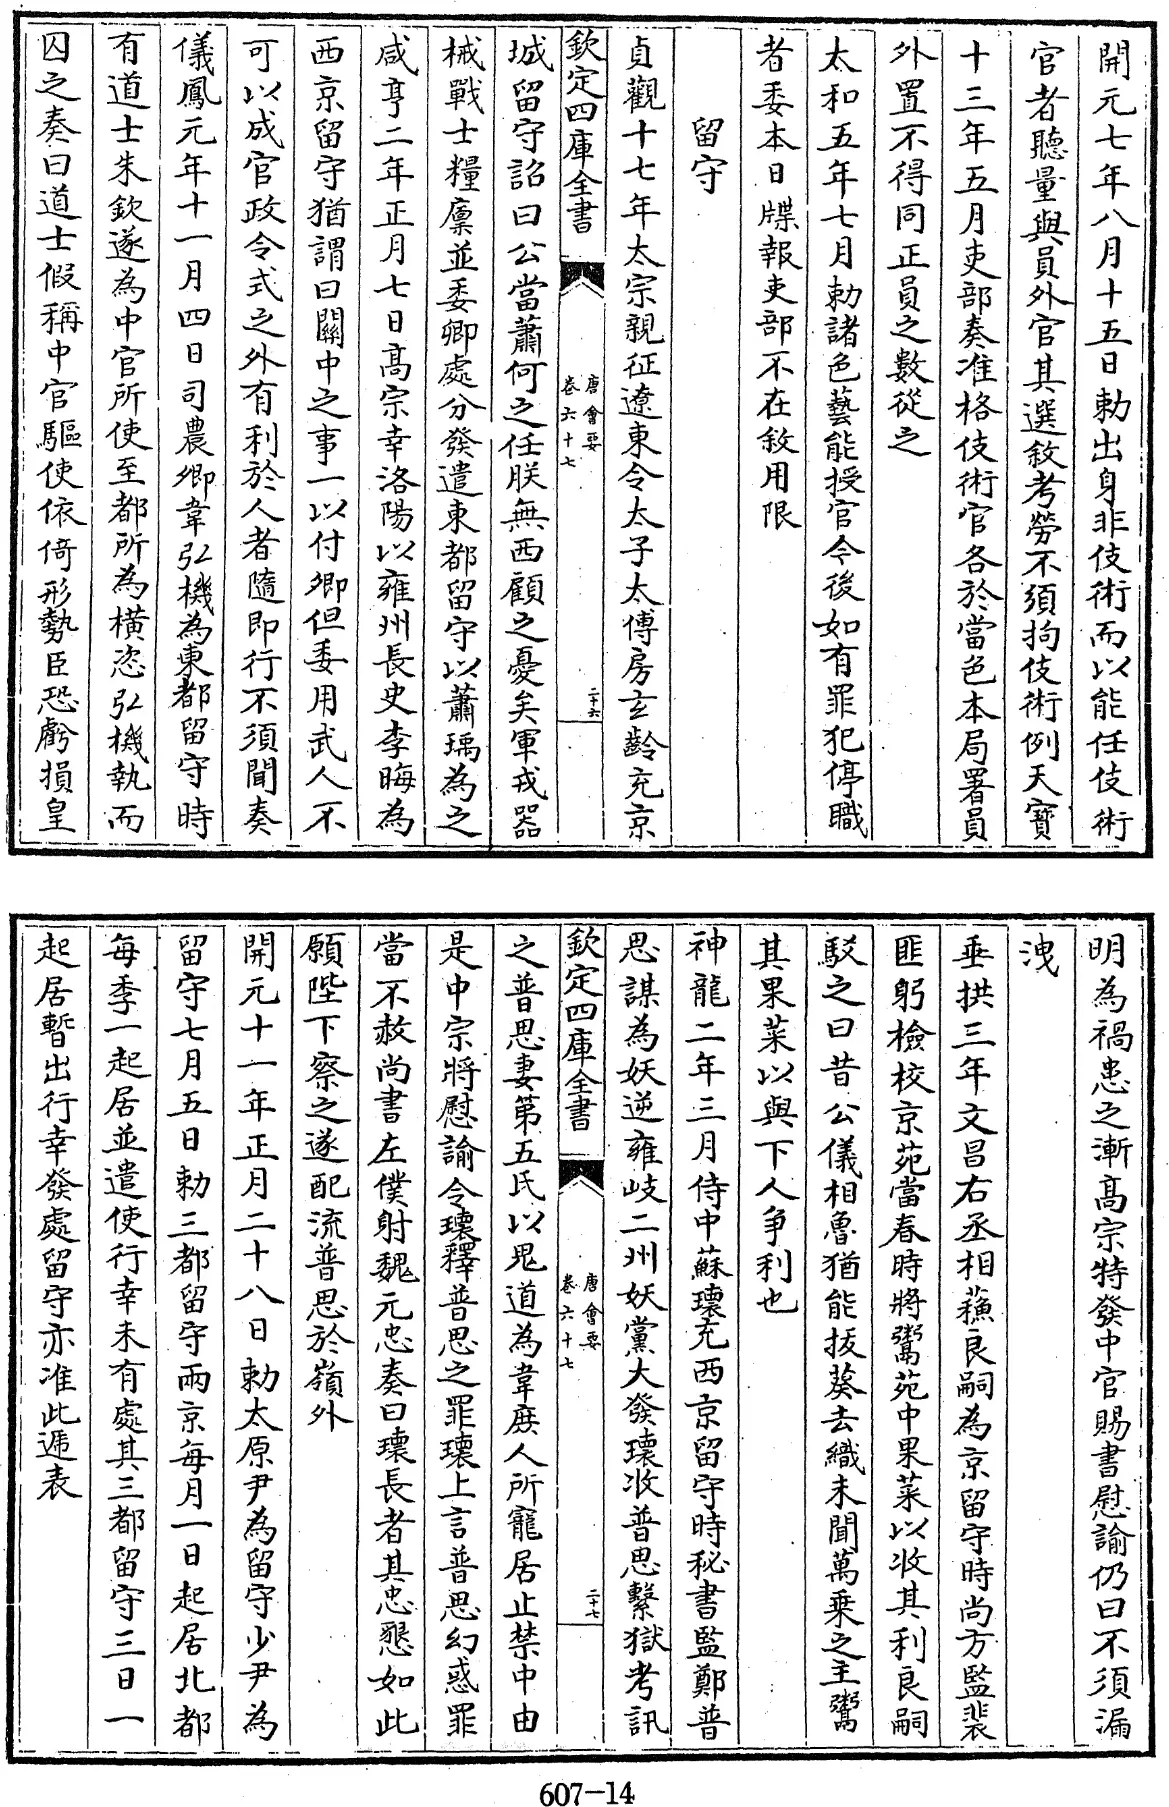 開元七年八月十五日勅出身非伎術而以能任伎術
官者聽量與員外官其選敘考勞不須拘伎術例天寶
十三年五月吏部奏准格伎術官各於當色本局署員
外置不得同正員之數從之
太和五年七月勅諸色藝能授官今後如有罪犯停職
者委本日牒報吏部不在敘用限
留守
貞觀十七年太宗親征遼東令太子太傅房玄齡充京
欽定四庫全書
唐會要
卷六十七
二十六
城留守詔曰公當蕭何之任朕無西顧之憂矣軍戎器
械戰士糧廩並委卿處分發遣東都留守以蕭瑀為之
咸亨二年正月七日高宗幸洛陽以雍州長史李晦為
西京留守猶謂曰關中之事一以付卿但委用武人不
可以成官政令式之外有利於人者隨即行不須聞奏
儀鳳元年十一月四日司農卿韋弘機為東都留守時
有道士朱欽遂為中官所使至都所為橫恣弘機執而
囚之奏曰道士假稱中官驅使依倚形勢臣恐虧損皇
明為禍患之漸高宗特發中官賜書慰諭仍曰不須漏
洩
垂拱三年文昌右丞相蘓良嗣為京留守時尚方監裴
匪躬檢校京苑當春時將鬻苑中果菜以收其利良嗣
駁之曰昔公儀相魯猶能拔葵去織未聞萬乗之主鬻
其果菜以與下人爭利也
神龍二年三月侍中蘇瓌充西京留守時秘書監鄭普
思謀為妖逆雍岐二州妖黨大發瓌收普思繫獄考訊
欽定四庫全書
唐會要
卷六十七
二十七
之普思妻第五氏以鬼道為韋庶人所寵居止禁中由
是中宗將慰諭令瓌釋普思之罪瓌上言普思幻惑罪
當不赦尚書左僕射魏元忠奏曰瓌長者其忠懇如此
願陛下察之遂配流普思於嶺外
開元十一年正月二十八日勅太原尹為留守少尹為
留守七月五日勅三都留守兩京每月一日起居北都
每季一起居並遣使行幸未有處其三都留守三日一
起居暫出行幸發處留守亦准此遞表
607-14